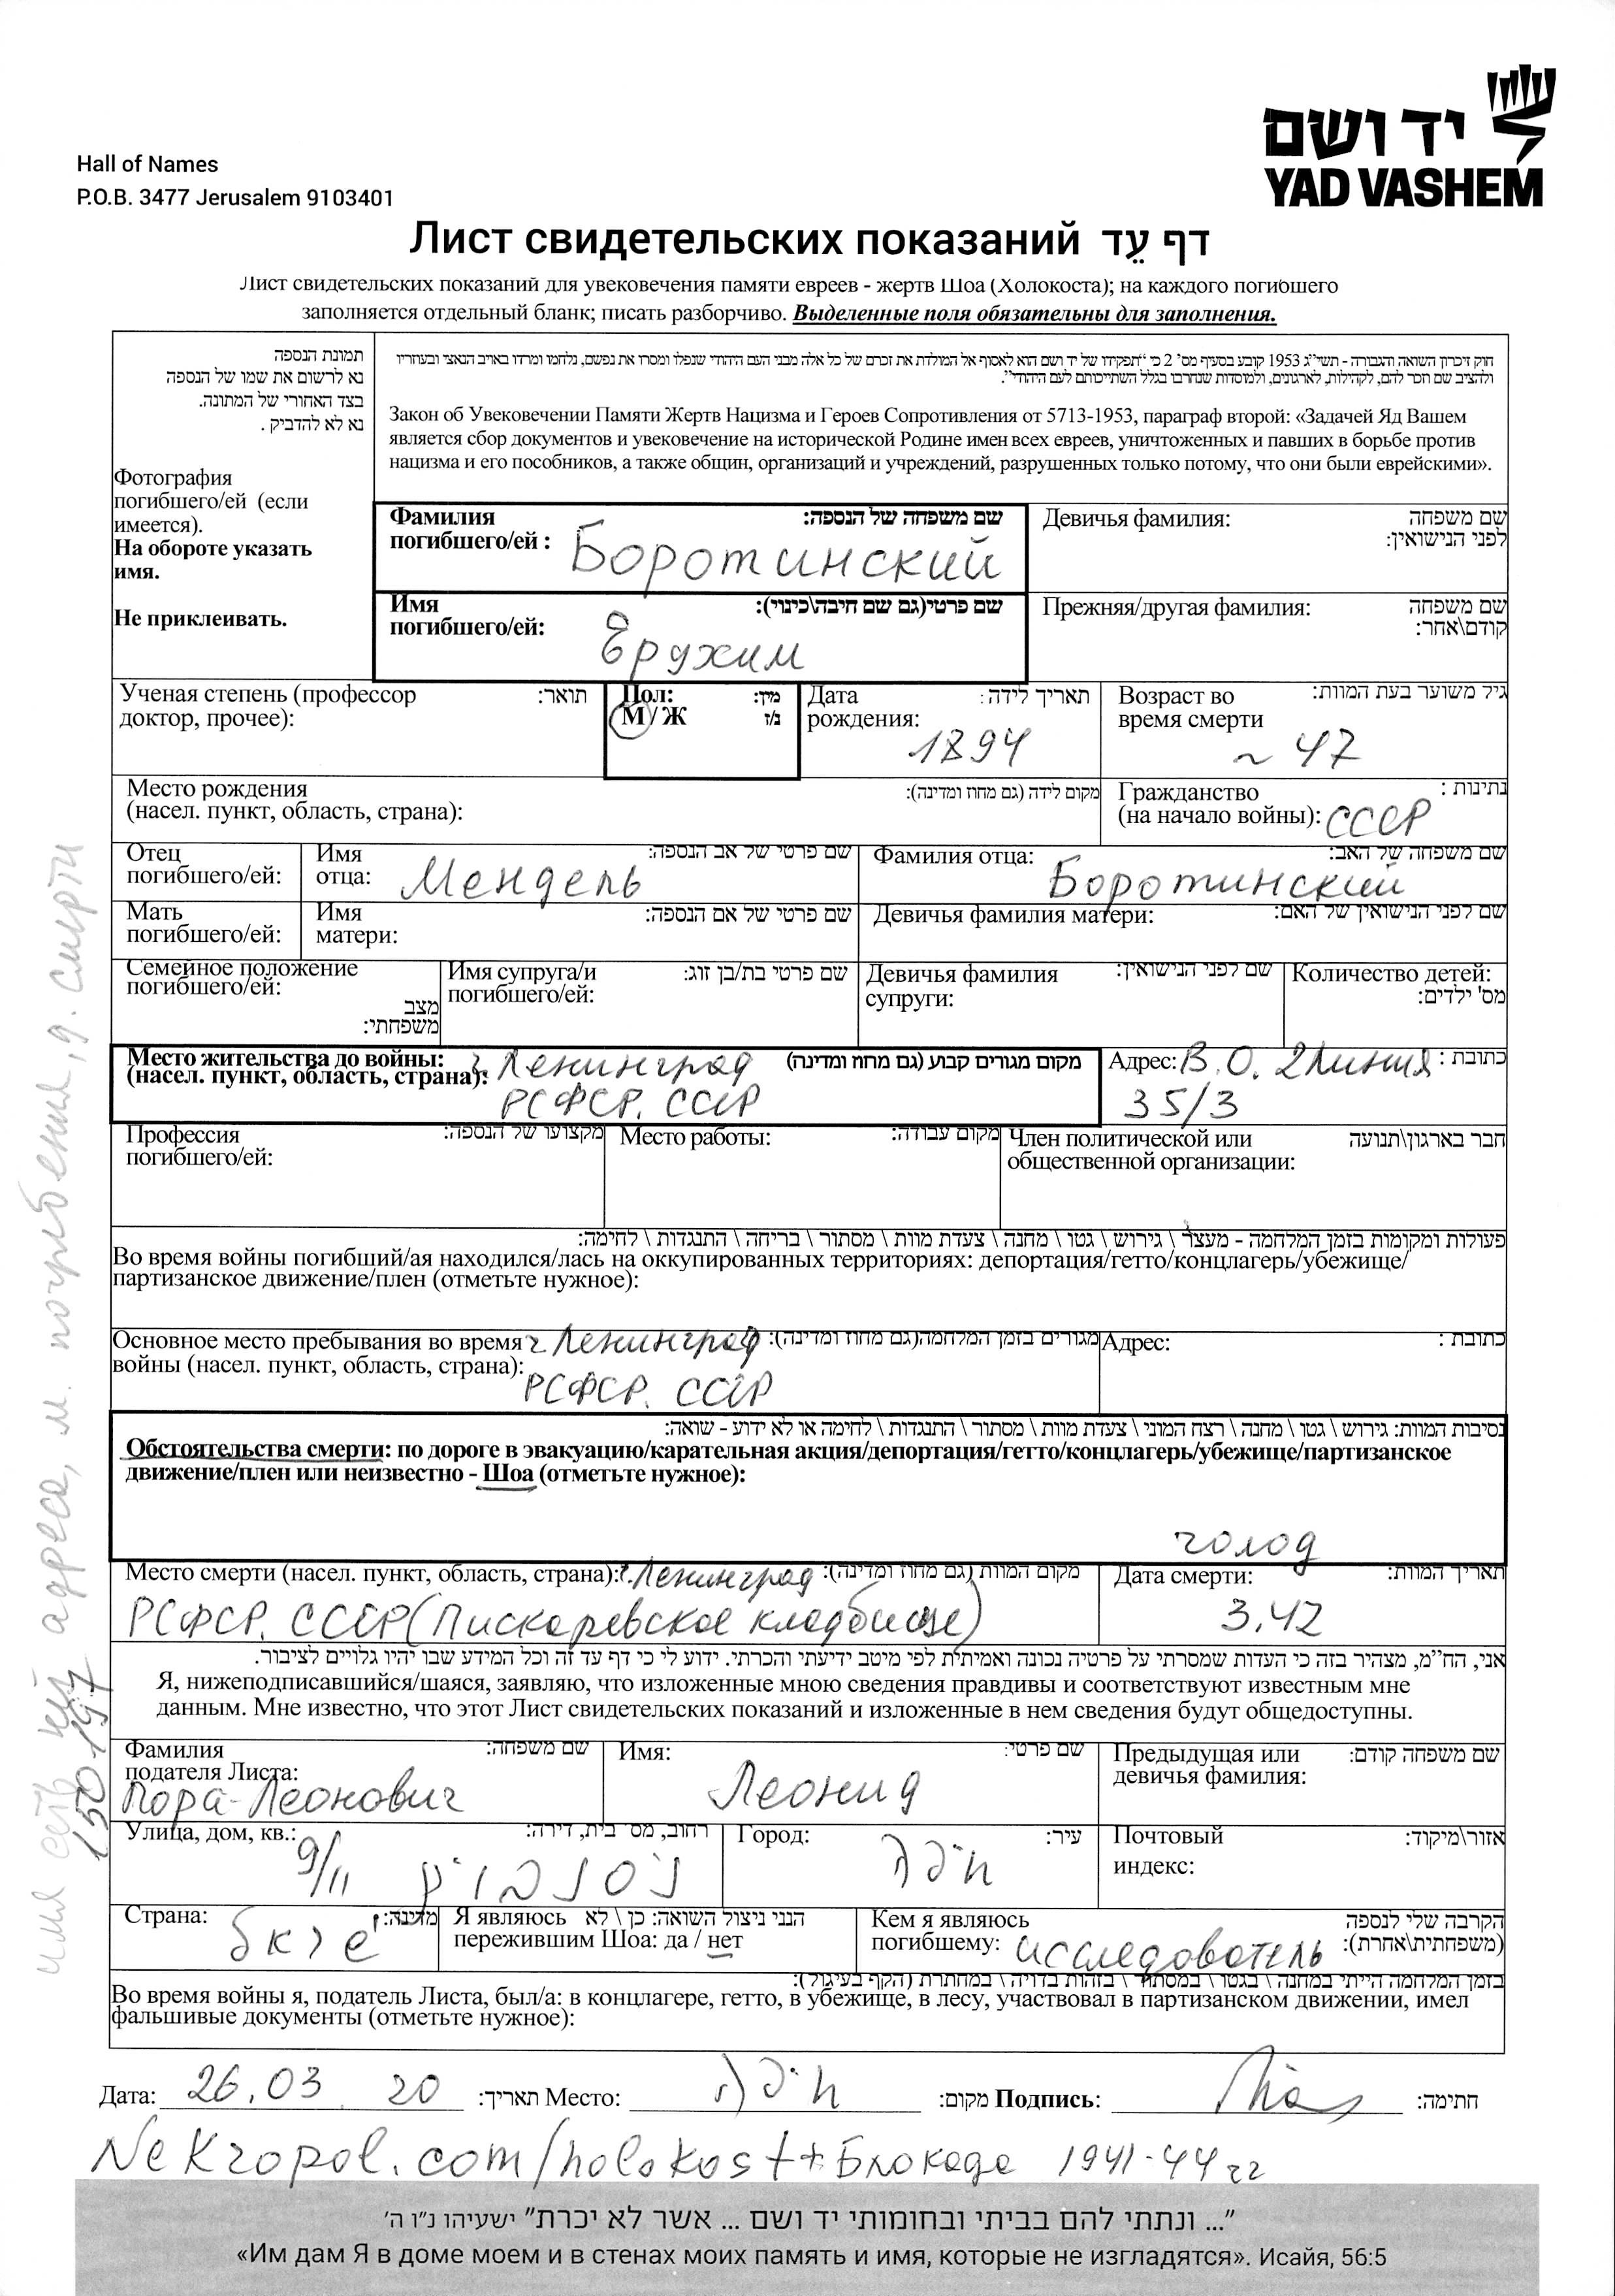 Hall of Names
P.O.B. 3477 Jerusalem 9103401
יד ושם
YAD VASHEM
Лист свидетельских показаний דף עֵד
Лист свидетельских показаний для увековечения памяти евреев - жертв Шоа (Холокоста); на каждого погибшего
заполняется отдельный бланк; писать разборчиво. Выделенные поля обязательны для заполнения.
תמונת הנספה
נא לרשום את שמו של הנספה
בצד האחורי של המתונה.
נא לא להדביק .
Фотография
погибшего/ей (если
имеется).
На обороте указать
имя.
Не приклеивать.
חוק זיכרון השואה והגבורה - תשי"ג 1953 קובע בסעיף מס' 2 כי "תפקידו של יד ושם הוא לאסוף אל המולדת את זכרם של כל אלה מבני העם היהודי שנפלו ומסרו את נפשם, נלחמו ומרדו באויב הנאצי ובעוזריו
ולהציב שם וזכר להם, לקהילות, לארגונים, ולמוסדות שנחרבו בגלל השתייכותם לעם היהודי".
Закон об Увековечении Памяти Жертв Нацизма и Героев Сопротивления от 5713-1953, параграф второй: «Задачей Яд Вашем
является сбор документов и увековечение на исторической Родине имен всех евреев, уничтоженных и павших в борьбе против
нацизма и его пособников, а также общин, организаций и учреждений, разрушенных только потому, что они были еврейскими».
Фамилия שם משפחה של הנספה:
погибшего/ей : Боротинский
Девичья фамилия: שם משפחה
לפני הנישואין:
Имя שם פרטי(גם שם חיבה\כינוי):
погибшего/ей: Ерухим
Прежняя/другая фамилия: שם משפחה
קודם\אחר:
Ученая степень (профессор תואר:
доктор, прочее):
Пол: מין:
М / Ж ז/נ
Дата תאריך לידה :
рождения: 1894
Возраст во גיל משוער בעת המוות:
время смерти ~ 47
Место рождения מקום לידה (גם מחוז ומדינה):
(насел. пункт, область, страна):
Гражданство נתינות :
(на начало войны): СССР
Отец
погибшего/ей:
Имя שם פרטי של אב הנספה:
отца: Мендель
Фамилия отца: שם משפחה של האב:
Боротинский
Мать
погибшего/ей:
Имя שם פרטי של אם הנספה:
матери:
Девичья фамилия матери: שם לפני הנישואין של האם:
Семейное положение
погибшего/ей:
מצב
משפחתי:
Имя супруга/и שם פרטי בת/בן זוג:
погибшего/ей:
Девичья фамилия שם לפני הנישואין:
супруги:
Количество детей:
מס' ילדים:
Место жительства до войны: г. Ленинград מקום מגורים קבוע (גם מחוז ומדינה)
(насел. пункт, область, страна): РСФСР. СССР
Адрес: В.О. 2 Линия כתובת :
35/3
Профессия מקצועו של הנספה:
погибшего/ей:
Место работы: מקום עבודה:
Член политической или חבר בארגון\תנועה
общественной организации:
פעולות ומקומות בזמן המלחמה - מעצר \ גירוש \ גטו \ מחנה \ צעדת מוות \ מסתור \ בריחה \ התנגדות \ לחימה:
Во время войны погибший/ая находился/лась на оккупированных территориях: депортация/гетто/концлагерь/убежище/
партизанское движение/плен (отметьте нужное):
Основное место пребывания во время г. Ленинград מגורים בזמן המלחמה(גם מחוז ומדינה):
войны (насел. пункт, область, страна): РСФСР. СССР
Адрес: כתובת :
נסיבות המוות: גירוש \ גטו \ מחנה \ רצח המוני \ צעדת מוות \ מסתור \ התנגדות \ לחימה או לא ידוע - שואה:
Обстоятельства смерти: по дороге в эвакуацию/карательная акция/депортация/гетто/концлагерь/убежище/партизанское
движение/плен или неизвестно - Шоа (отметьте нужное):
голод
Место смерти (насел. пункт, область, страна): г. Ленинград מקום המוות (גם מחוז ומדינה):
РСФСР. СССР (Пискаревское кладбище)
Дата смерти: תאריך המוות:
3.42
אני, הח"מ, מצהיר בזה כי העדות שמסרתי על פרטיה נכונה ואמיתית לפי מיטב ידיעתי והכרתי. ידוע לי כי דף עד זה וכל המידע שבו יהיו גלויים לציבור.
Я, нижеподписавшийся/шаяся, заявляю, что изложенные мною сведения правдивы и соответствуют известным мне
данным. Мне известно, что этот Лист свидетельских показаний и изложенные в нем сведения будут общедоступны.
Фамилия שם משפחה:
подателя Листа:
Пора-Леонович
Имя: שם פרטי:
Леонид
Предыдущая или שם משפחה קודם:
девичья фамилия:
Улица, дом, кв.: רחוב, מס' בית, דירה:
9/11
Город: עיר:
חיפה
Почтовый אזור\מיקוד:
индекс:
Страна: מדינה:
Я являюсь הנני ניצול השואה: כן \ לא
пережившим Шоа: да / нет
Кем я являюсь הקרבה שלי לנספה
погибшему: исследователь (משפחתית\אחרת):
בזמן המלחמה הייתי במחנה \ בגטו \ במסתור \ בזהות בדויה \ במחתרת (הקף בעיגול):
Во время войны я, податель Листа, был/а: в концлагере, гетто, в убежище, в лесу, участвовал в партизанском движении, имел
фальшивые документы (отметьте нужное):
Дата: 26.03 20 תאריך: Место: חיפה מקום: Подпись: חתימה:
Nekropol.com/holokost++Блокада 1941-44 гг
"... ונתתי להם בביתי ובחומותי יד ושם ... אשר לא יכרת" ישעיהו נ"ו ה'
«Им дам Я в доме моем и в стенах моих память и имя, которые не изгладятся». Исайя, 56:5
имя есть адреса, м. погребения, д. смерти
150197